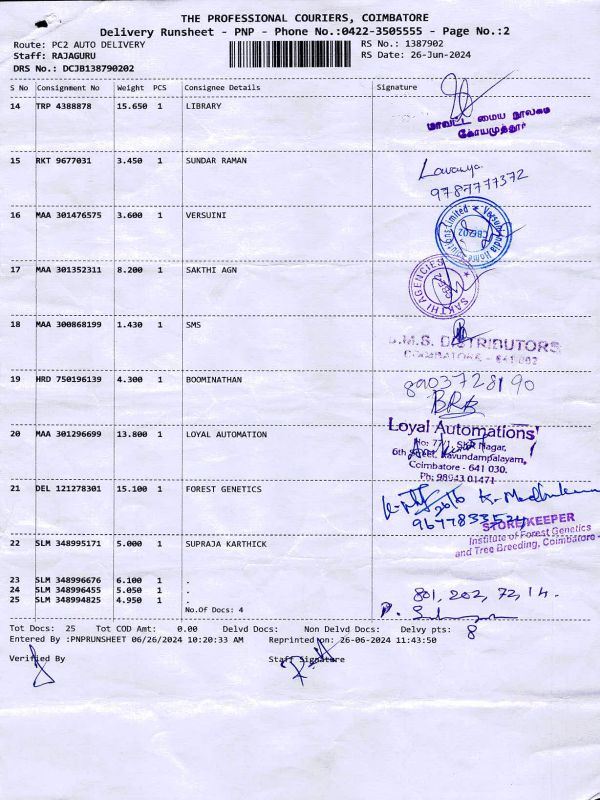 THE PROFESSIONAL COURIERS, COIMBATORE
Delivery Runsheet - PNP - Phone No.:0422-3505555 - Page No.:2
Route: PC2 AUTO DELIVERY RS No.: 1387902
Staff: RAJAGURU RS Date: 26-Jun-2024
DRS No.: DCJB138790202
S No Consignment No Weight PCS Consignee Details Signature
14 TRP 4388878 15.650 1 LIBRARY
மாவட்ட மைய நூலகம்
கோயமுத்தூர்
15 RKT 9677031 3.450 1 SUNDAR RAMAN
Lavanya
9787777372
16 MAA 301476575 3.600 1 VERSUINI
17 MAA 301352311 8.200 1 SAKTHI AGN
SAKTHI AGENCIES
18 MAA 300868199 1.430 1 SMS
S.M.S. DISTRIBUTORS
COIMBATORE - 641 002
19 HRD 750196139 4.300 1 BOOMINATHAN
8903728190
BRB
20 MAA 301296699 13.800 1 LOYAL AUTOMATION
Loyal Automations
No: 77/1, SKR Nagar,
6th Street, Kavundampalayam,
Coimbatore - 641 030.
Ph: 98943 01471
21 DEL 121278301 15.100 1 FOREST GENETICS
9677833524
STORE KEEPER
Institute of Forest Genetics
and Tree Breeding, Coimbatore -
22 SLM 348995171 5.000 1 SUPRAJA KARTHICK
23 SLM 348996676 6.100 1 .
24 SLM 348996455 5.050 1 .
25 SLM 348994825 4.950 1 .
801, 202, 72, 14.
No.Of Docs: 4
Tot Docs: 25 Tot COD Amt: 0.00 Delvd Docs: Non Delvd Docs: Delvy pts: 8
Entered By :PNPRUNSHEET 06/26/2024 10:20:33 AM Reprinted on: 26-06-2024 11:43:50
Verified By Staff Signature